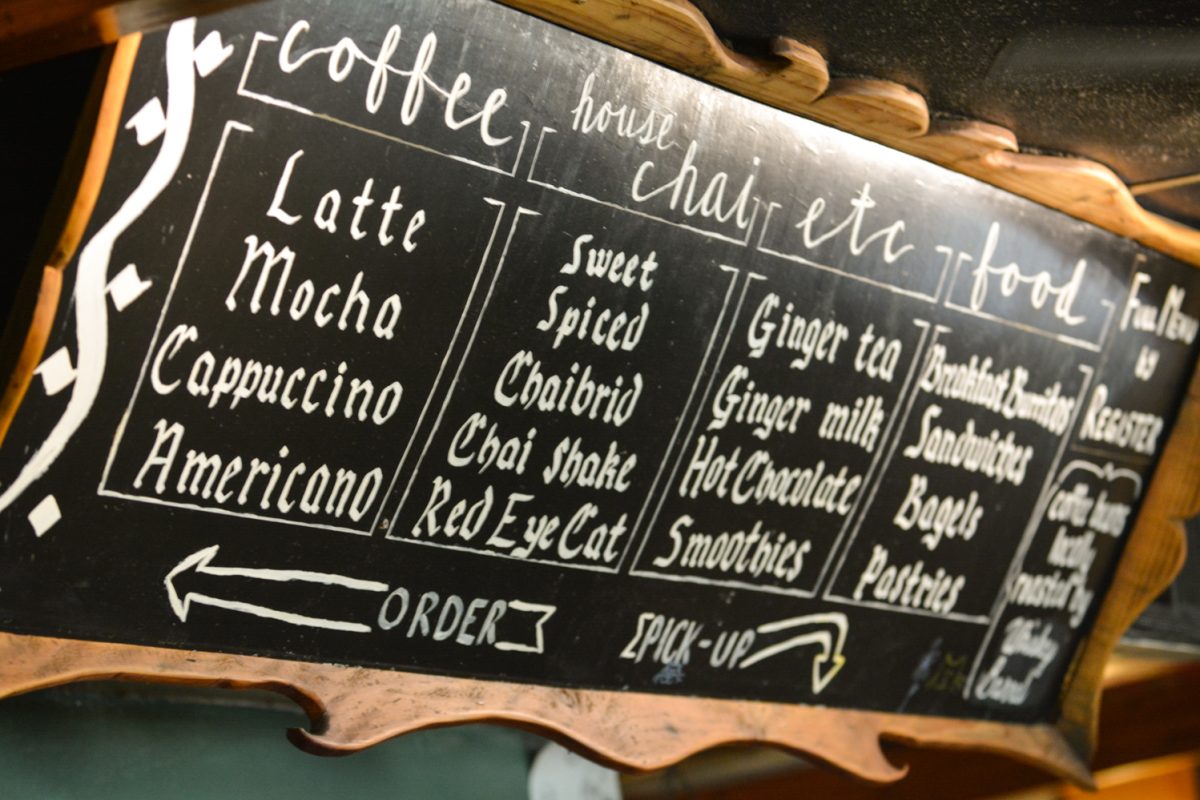 coffee
Latte
Mocha
Cappuccino
Americano
house
chai
Sweet
Spiced
Chaibrid
Chai Shake
Red Eye Cat
etc
Ginger tea
Ginger milk
Hot Chocolate
Smoothies
food
Breakfast Burritos
Sandwiches
Bagels
Pastries
Full Menu
by
REGISTER
coffee beans
locally
roasted by
ORDER
PICK-UP